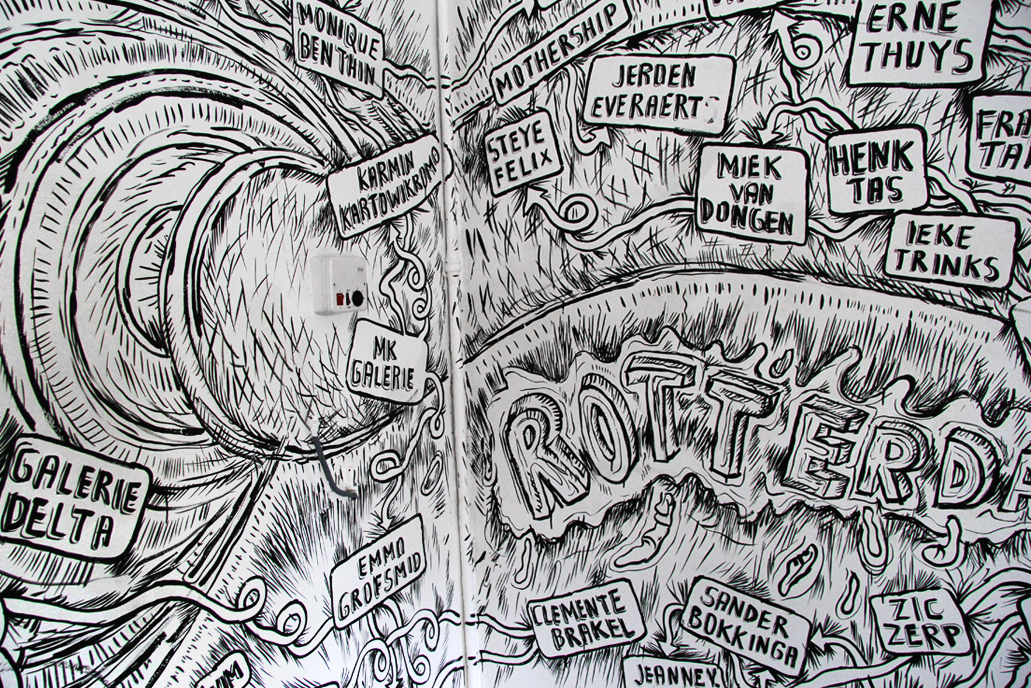 MONIQUE
BENTHIN
MOTHERSHIP
ERNE
THUYS
JERDEN
EVERAERTS
STEYE
FELIX
KARMIN
KARTOWIKROMO
MIEK
VAN
DONGEN
HENK
TAS
FRA
TA
IEKE
TRINKS
MK
GALERIE
ROTTERDA
GALERIE
DELTA
EMMO
GROFSMID
CLEMENTE
BRAKEL
SANDER
BOKKINGA
ZIC
ZERP
JEANNEY